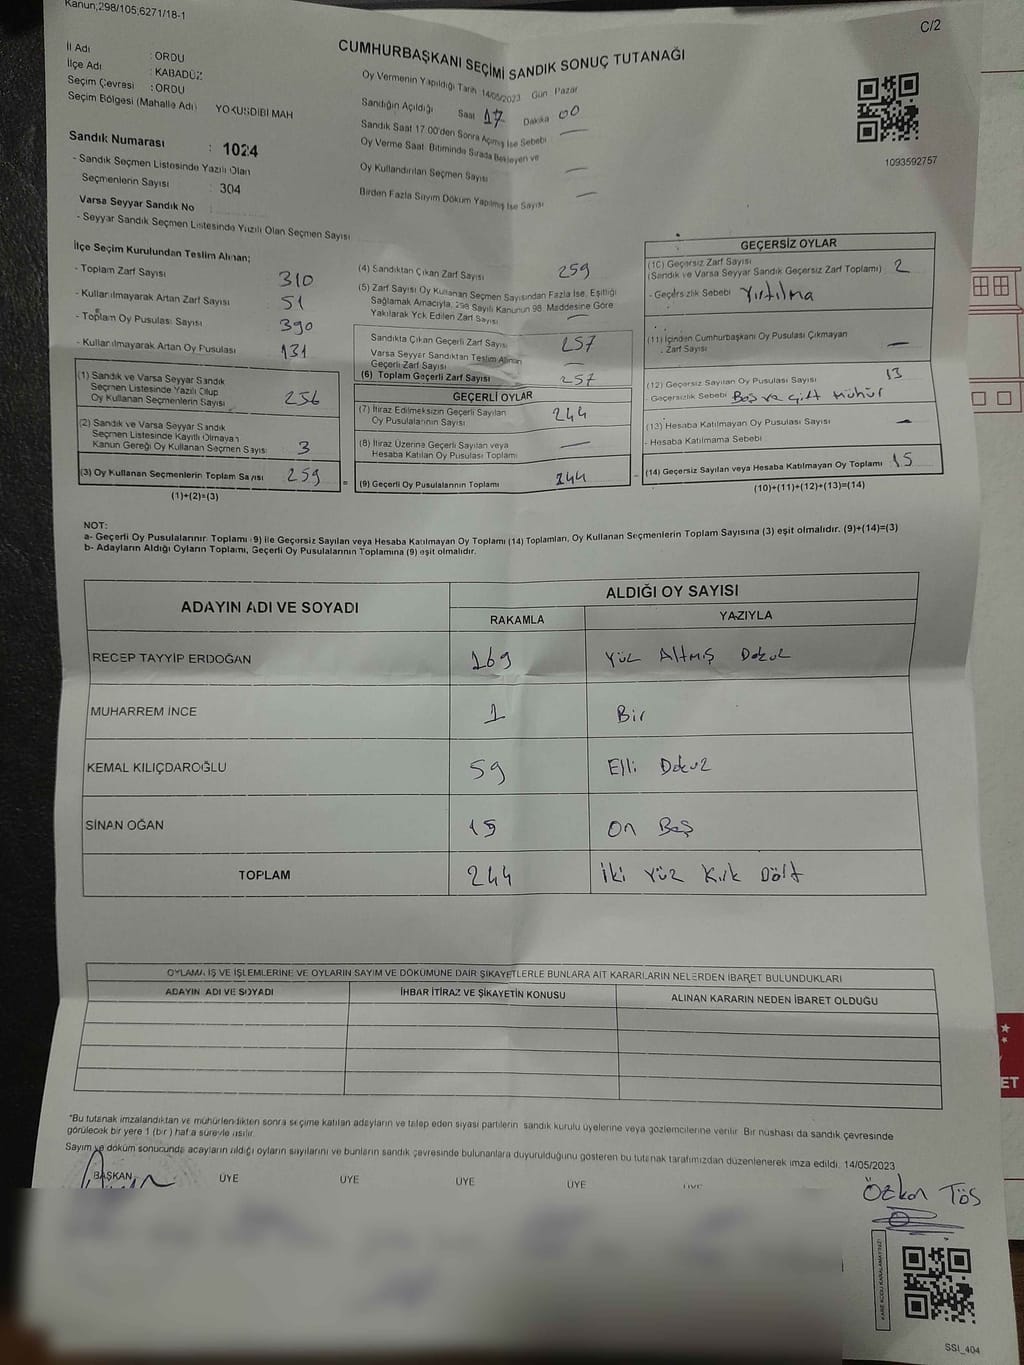 Kanun;298/105;6271/18-1
C/2
CUMHURBAŞKANI SEÇİMİ SANDIK SONUÇ TUTANAĞI
İl Adı : ORDU
İlçe Adı : KABADÜZ
Seçim Çevresi : ORDU
Seçim Bölgesi (Mahalle Adı) YOKUŞDİBİ MAH
Sandık Numarası : 1024
- Sandık Seçmen Listesinde Yazılı Olan
Seçmenlerin Sayısı : 304
Varsa Seyyar Sandık No
- Seyyar Sandık Seçmen Listesinde Yazılı Olan Seçmen Sayısı
Oy Vermenin Yapıldığı Tarih 14/05/2023 Gün Pazar
Sandığın Açıldığı Saat 17 Dakika 00
Sandık Saat 17 00'den Sonra Açılmış İse Sebebi —
Oy Verme Saat Bitiminde Sırada Bekleyen ve
Oy Kullandırılan Seçmen Sayısı —
Birden Fazla Sayım Döküm Yapılmış İse Sayısı —
1093592757
İlçe Seçim Kurulundan Teslim Alınan;
- Toplam Zarf Sayısı 310
- Kullanılmayarak Artan Zarf Sayısı 51
- Toplam Oy Pusulası Sayısı 390
- Kullanılmayarak Artan Oy Pusulası 131
(1) Sandık ve Varsa Seyyar Sandık
Seçmen Listesinde Yazılı Olup
Oy Kullanan Seçmenlerin Sayısı 256
(2) Sandık ve Varsa Seyyar Sandık
Seçmen Listesinde Kayıtlı Olmayan
Kanun Gereği Oy Kullanan Seçmen Sayısı 3
(3) Oy Kullanan Seçmenlerin Toplam Sayısı 259
(1)+(2)=(3)
=
(4) Sandıktan Çıkan Zarf Sayısı 259
(5) Zarf Sayısı Oy Kullanan Seçmen Sayısından Fazla İse, Eşitliği
Sağlamak Amacıyla, 298 Sayılı Kanunun 98. Maddesine Göre
Yakılarak Yok Edilen Zarf Sayısı —
Sandıkta Çıkan Geçerli Zarf Sayısı 257
Varsa Seyyar Sandıktan Teslim Alınan
Geçerli Zarf Sayısı —
(6) Toplam Geçerli Zarf Sayısı 257
GEÇERLİ OYLAR
(7) İtiraz Edilmeksizin Geçerli Sayılan
Oy Pusulalarının Sayısı 244
(8) İtiraz Üzerine Geçerli Sayılan veya
Hesaba Katılan Oy Pusulası Toplamı —
(9) Geçerli Oy Pusulalarının Toplamı 244
GEÇERSİZ OYLAR
(10) Geçersiz Zarf Sayısı
(Sandık ve Varsa Seyyar Sandık Geçersiz Zarf Toplamı) 2
- Geçersizlik Sebebi Yırtılma
(11) İçinden Cumhurbaşkanı Oy Pusulası Çıkmayan
Zarf Sayısı —
(12) Geçersiz Sayılan Oy Pusulası Sayısı 13
Geçersizlik Sebebi Boş ve Çift Mühür
(13) Hesaba Katılmayan Oy Pusulası Sayısı —
- Hesaba Katılmama Sebebi
(14) Geçersiz Sayılan veya Hesaba Katılmayan Oy Toplamı 15
(10)+(11)+(12)+(13)=(14)
NOT:
a- Geçerli Oy Pusulalarının Toplamı (9) ile Geçersiz Sayılan veya Hesaba Katılmayan Oy Toplamı (14) Toplamları, Oy Kullanan Seçmenlerin Toplam Sayısına (3) eşit olmalıdır. (9)+(14)=(3)
b- Adayların Aldığı Oyların Toplamı, Geçerli Oy Pusulalarının Toplamına (9) eşit olmalıdır.
ADAYIN ADI VE SOYADI
ALDIĞI OY SAYISI
RAKAMLA YAZIYLA
RECEP TAYYİP ERDOĞAN 169 Yüz Altmış Dokuz
MUHARREM İNCE 1 Bir
KEMAL KILIÇDAROĞLU 59 Elli Dokuz
SİNAN OĞAN 15 On Beş
TOPLAM 244 İki Yüz Kırk Dört
OYLAMA İŞ VE İŞLEMLERİNE VE OYLARIN SAYIM VE DÖKÜMÜNE DAİR ŞİKAYETLERLE BUNLARA AİT KARARLARIN NELERDEN İBARET BULUNDUKLARI
ADAYIN ADI VE SOYADI İHBAR İTİRAZ VE ŞİKAYETİN KONUSU ALINAN KARARIN NEDEN İBARET OLDUĞU
*Bu tutanak imzalandıktan ve mühürlendikten sonra seçime katılan adayların ve talep eden siyasi partilerin sandık kurulu üyelerine veya gözlemcilerine verilir. Bir nüshası da sandık çevresinde
görülecek bir yere 1 (bir) hafta süreyle asılır.
Sayım ve döküm sonucunda adayların aldığı oyların sayılarını ve bunların sandık çevresinde bulunanlara duyurulduğunu gösteren bu tutanak tarafımızdan düzenlenerek imza edildi. 14/05/2023
BAŞKAN ÜYE ÜYE ÜYE ÜYE
Özkan Tös
SSI_404
ET